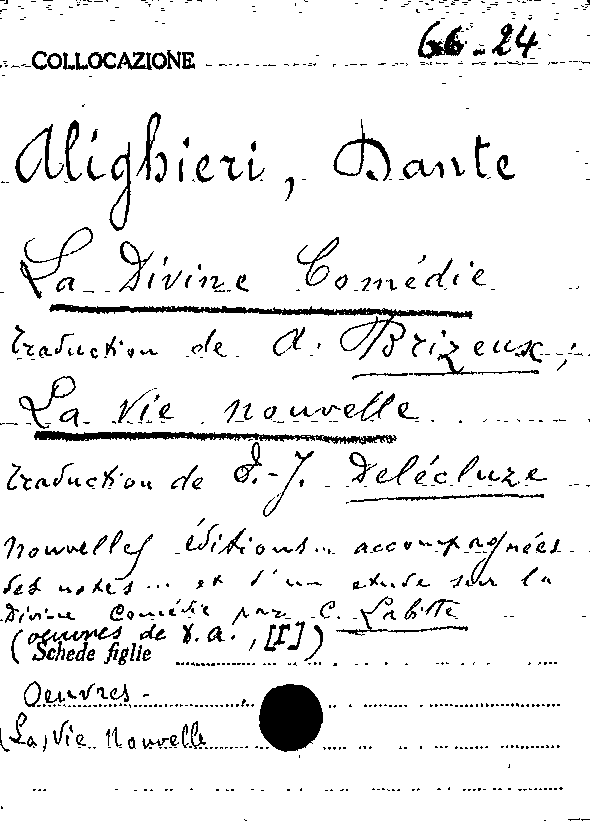 66-24
COLLOCAZIONE
Alighieri, Dante
La Divine Comédie
traduction de A. Brizeux;
La Vie nouvelle
traduction de E.-J. Delécluze
Nouvelles éditions... accompagnées
des notes... et d'un etude sur la
Divine Comédie par C. Labitte
(oeuvres de D.A., [I])
Schede figlie
Oeuvres -
(La) Vie Nouvelle